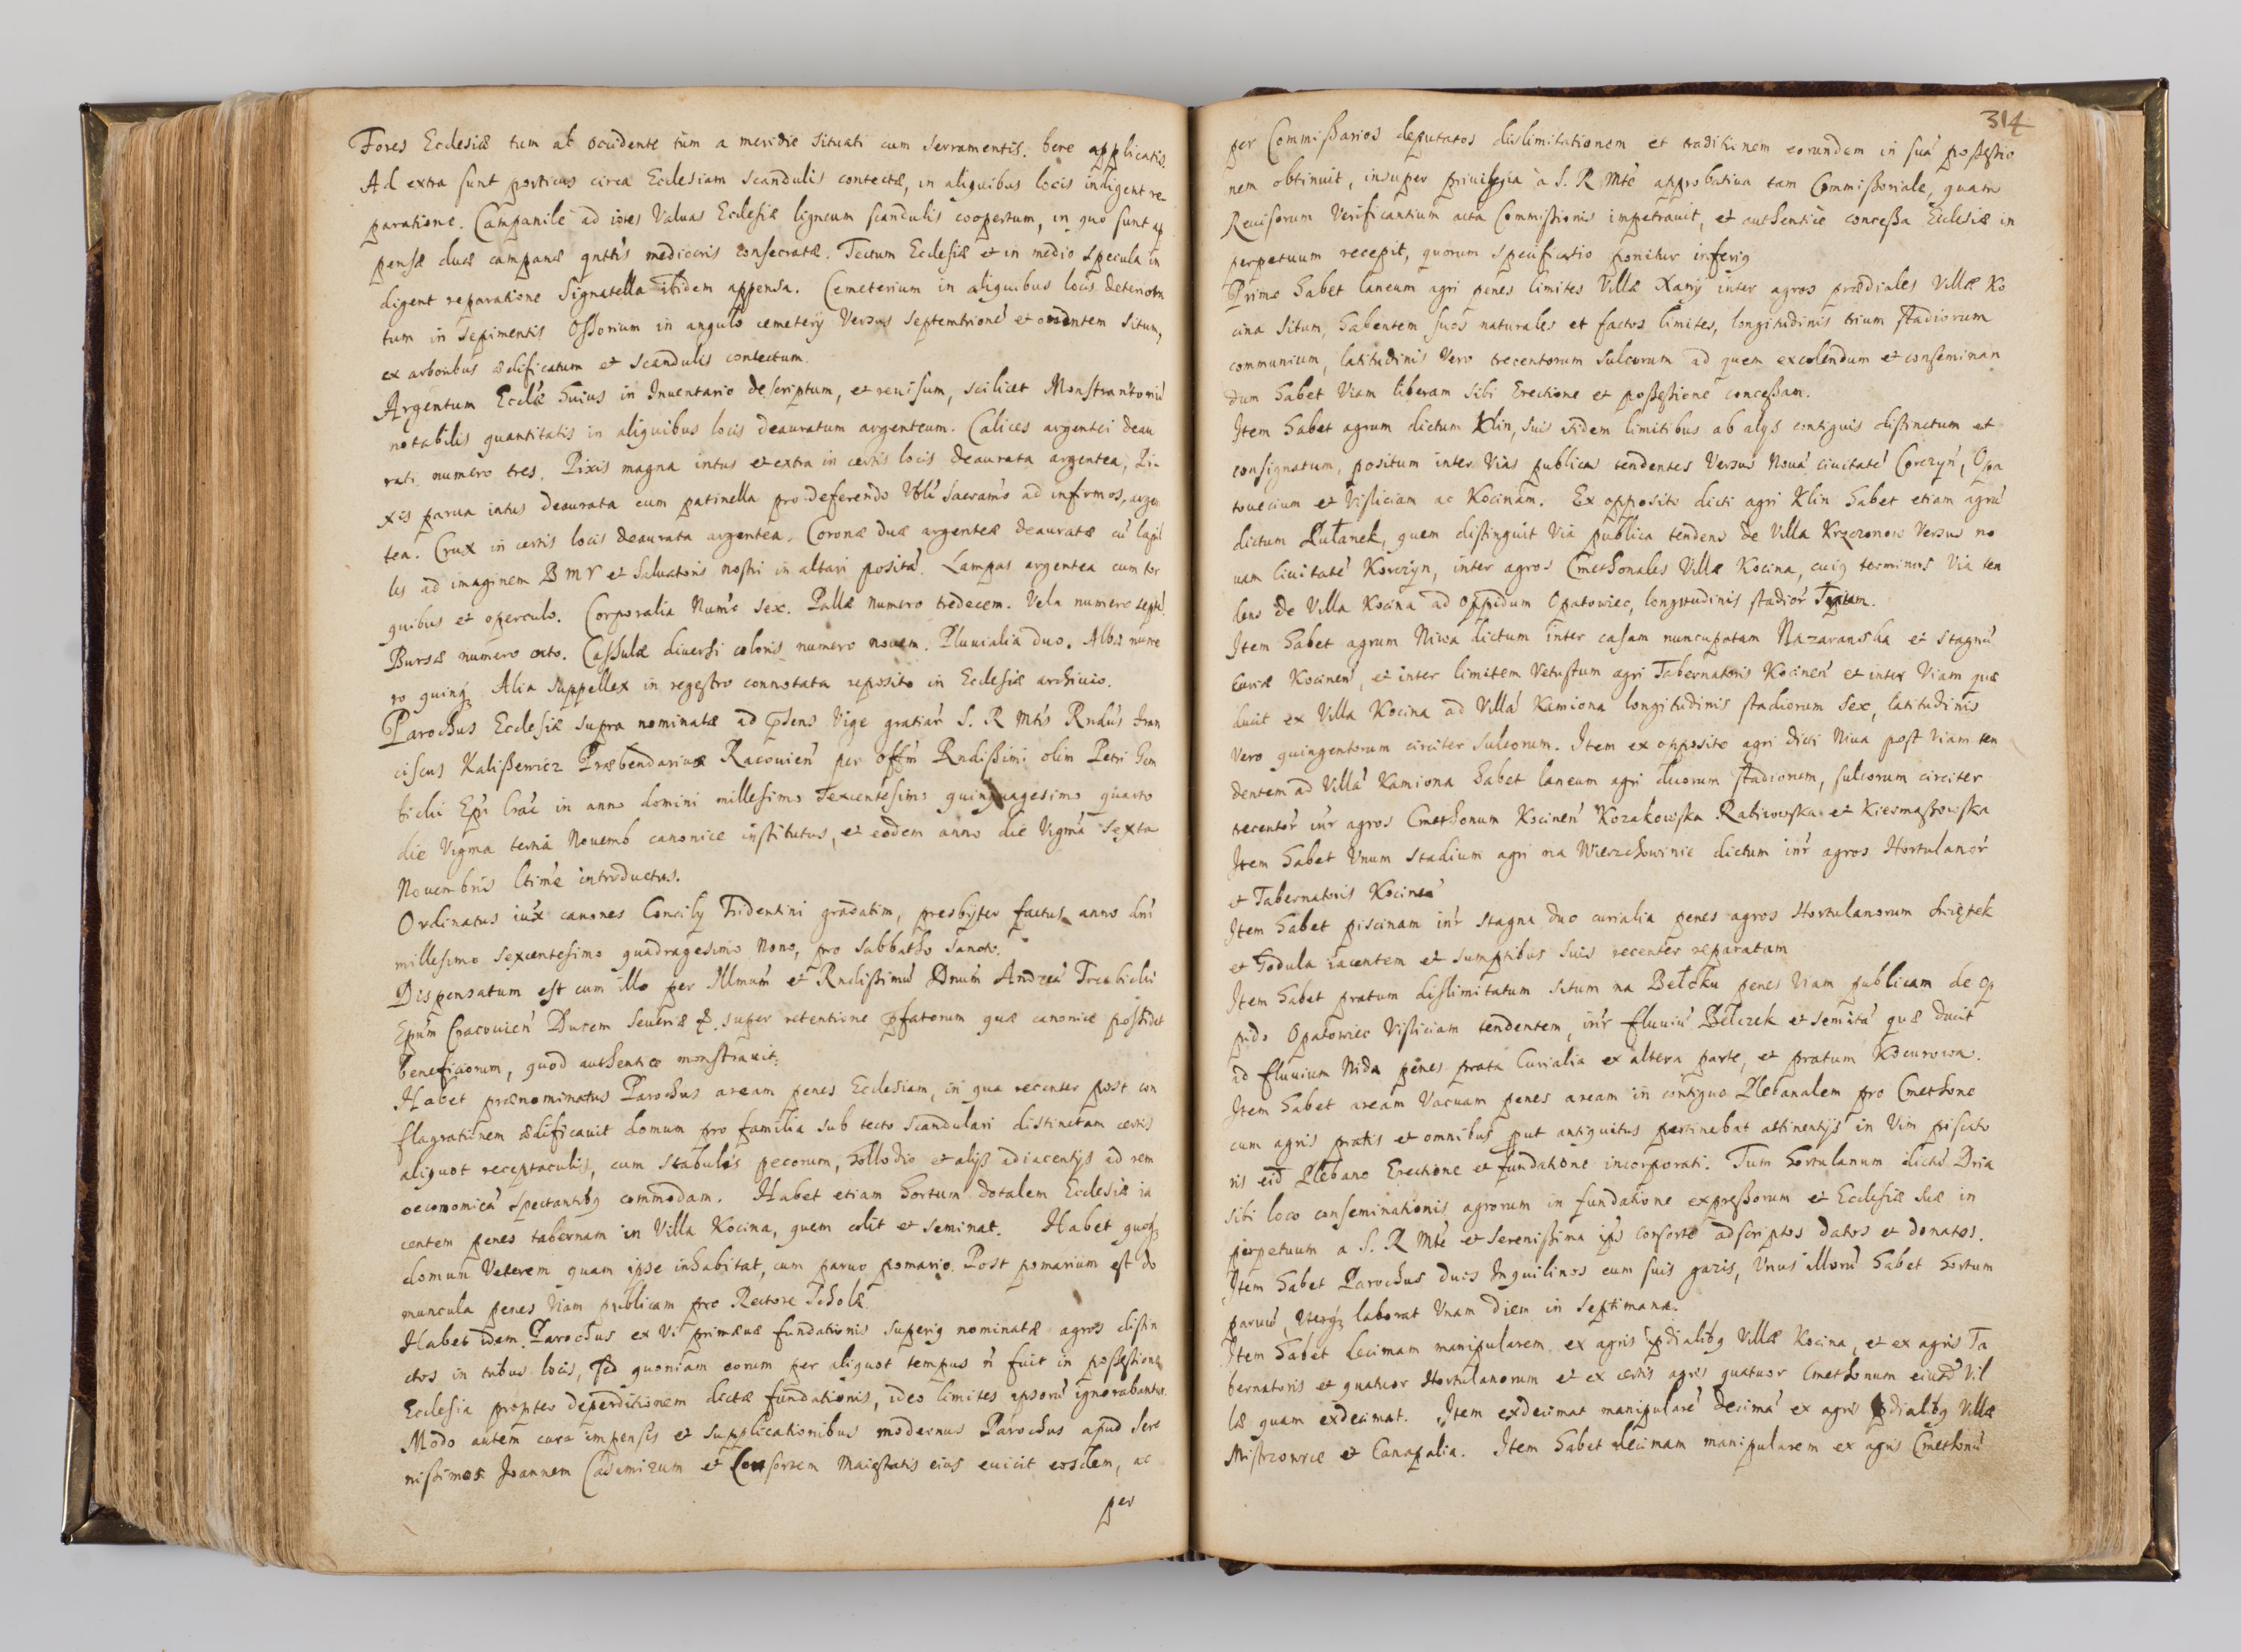 Fores Ecclesiæ tum ab occidente tum a meridie situati cum serramentis bene applicatis.
Ad extra sunt porticus circa Ecclesiam scandulis contectæ, in aliquibus locis indigent re-
paratione. Campanile ad ipsas Valvas Ecclesiæ ligneum scandulis coopertum, in quo sunt ap
pensæ duæ campanæ qntt̄is mediocris consecratæ. Tectum Ecclesiæ et in medio specula in
digent reparatione Signatella ibidem appensa. Cemeterium in aliquibus locis deteriora
tum in sepimentis Ossorium in angulo cemeterij Versus septemtrionē et orientem situm,
ex arboribus ædificatum et scandulis contectum.
Argentum Eccl̄æ huius in Inuentario descriptum, et reuisum, scilicet Monstrantoriū
notabilis quantitatis in aliquibus locis deauratum argenteum. Calices argentei deau
rati numero tres. Pixis magna intus et extra in certis locis deaurata argentea, Pi-
xis parua intus deaurata cum patinella pro deferendo Vbli Sacram̄o ad infirmos, argen
tea. Crux in certis locis deaurata argentea. Coronæ duæ argenteæ deauratæ cū lapil
lis ad imaginem B M V et Saluatoris nostri in altari positā. Lampas argentea cum tor
quibus et operculo. Corporalia Num̄o sex. Pallæ numero tredecem. Vela numero septē.
Bursæ numero octo. Cassulæ diuersi coloris numero nouem. Pluuialia duo. Albæ nume
ro quinq́. Alia suppellex in regestro connotata reposito in Ecclesiæ archiuio.
Parochus Ecclesiæ supra nominatæ ad p̄sens Vige gratiar̄ S. R Mt̄is Rndūs Fran
ciscus Kalißewicz Præbendarius Racouien̄ per off̄m Rndißimi olim Petri Gem
bicki Ep̄i Crac̄ in anno domini millesimo sexcentesimo quinquagesimo quarto
die Vigma terna Nouemb canonice institutus, et eodem anno die Vigmā sexta
Nouembris ltim̄e introductus.
Ordinatus iux̄ canones Concily Tridentini gradatim, presbyter factus anno dnī
millesimo sexcentesimo quadragesimo nono, pro Sabbatho Sancto.
Dispensatum est cum illo per Illmum̄ et Rndißimū Dnūm Andreā Trzebicki
Epūm Cracouien̄ Ducem Seueriæ & super retentione p̄fatorum quæ canonice possidet
beneficiorum, quod authentice monstrauit.
Habet prænominatus Parochus aream penes Ecclesiam, in qua recenter post con
flagrationem ædificauit domum pro familia sub tecto scandulari distinctam certis
aliquot receptaculis, cum stabulis pecorum, hollodio et alijs adiacentijs ad rem
oeconomicā spectantibq commodam. Habet etiam hortum dotalem Ecclesiæ ia
centem penes tabernam in Villa Kocina, quem colit et seminat. Habet quoq́
domum Veterem quam ipse inhabitat, cum paruo pomario. Post pomarium est do
muncula penes Viam publicam pro Rectore Scholæ.
Habet idem Parochus ex vi primæuæ fundationis superiq nominatæ agros distin
ctos in tribus locis, sed quoniam eorum per aliquot tempus n̄ fuit in poßeßione
Ecclesia propter deperditionem dictæ fundationis, ideo limites ipsorū ignorabantur.
Modo autem cura impensis et supplicationibus modernus Parochus apud Sere
nißimos Joannem Casimirum et Consortem Maiestatis eius euicit eosdem, ac
per
314
per Commißarios deputatos dislimitationem et traditionem eorundem in suā poßeßio
nem obtinuit, insuper priuilegia a S. R Mt̄e approbatiua tam Commißoriale, quam
Reuisorum Verificantium acta Commißionis impetrauit, et authentice conceßa Ecclesiæ in
perpetuum recepit, quorum specificatio ponitur inferiq
Primo habet laneum agri penes limites Villæ Xany inter agros prædiales Villæ Ko
cina situm, habentem suos naturales et factos limites, longitudinis trium stadiorum
communium, latitudinis Vero trecentorum sulcorum ad quem excolendum et conseminan
dum habet Viam liberam sibi Erectione et poßeßione conceßam.
Item habet agrum dictum Klin, suis itidem limitibus ab alijs contiguis distinctum et
consignatum, positum inter Vias publicas tendentes Versus Nouā ciuitatē Corczyn̄, Opa
touecium et Visliciam ac Kocinam. Ex opposito dicti agri Klin habet etiam agrū
dictum Pułanek, quem distinguit Via publica tendens de Villa Krzczonow Versus no
uam Ciuitatē Korczyn, inter agros Cmethonales Villæ Kocina, cuiq terminus Via ten
dens de Villa Kocina ad Oppidum Opatowiec, longitudinis stadior̄ Trium.
Item habet agrum Niwa dictum inter casam nuncupatam Nazaranska et stagnū
Curiæ Kocinen̄, et inter limitem Vetustum agri Tabernatoris Kocinen̄ et inter Viam quæ
ducit ex Villa Kocina ad Villā Kamiona longitudinis stadiorum sex, latitudinis
Vero quingentorum circiter sulcorum. Item ex opposito agri dicti Niua post Viam ten
dentem ad Villā Kamiona habet laneum agri duorum stadiorum, sulcorum circiter
trecentor̄ int̄r agros Cmethonum Kocinen̄ Kozakowska Ratiowska et Kiesmaßowska
Item habet Vnum stadium agri na Wierzchowinie dictum int̄r agros Hortulanor̄
et Tabernatoris Kocinen̄
Item habet piscinam int̄r stagna duo curialia penes agros Hortulanorum Swiętek
et Godula iacentem et sumptibus suis recenter reparatam
Item habet pratum dislimitatum situm na Bełcku penes Viam publicam de op
pido Opatowiec Visliciam tendentem, int̄r fluuiū Bełczek et semitā quæ ducit
ad fluuium Nida penes prata Curialia ex altera parte, et pratum Kocurowa.
Item habet aream Vacuam penes aream in contiguo Plebanalem pro Cmethone
cum agris pratis et omnibus put antiquitus pertinebat attinentijs in Vim priscito
ris eid̄ Plebano Erectione et fundatione incorporati. Tum hortulanum dictū Dria
sibi loco conseminationis agrorum in fundatione expreßorum et Ecclesiæ suæ in
perpetuum a S. R Mt̄e et Serenißima ip̄s consorte adscriptos datos et donatos.
Item habet Parochus duos Inquilinos cum suis gazis, Vnus illorū habet hortum
paruū, Vterq́ laborat Vnam diem in septimana.
Item habet decimam manipularem ex agris p̄dialibq Villæ Kocina, et ex agris Ta
bernatoris et quatuor Hortulanorum et ex certis agris quatuor Cmethonum eiusd̄ Vil
læ quam exdecimat. Item exdecimat manipularē decimā ex agris p̄dialibq Villæ
Mistrzowice et Canapalia. Item habet decimam manipularem ex agris Cmethonū